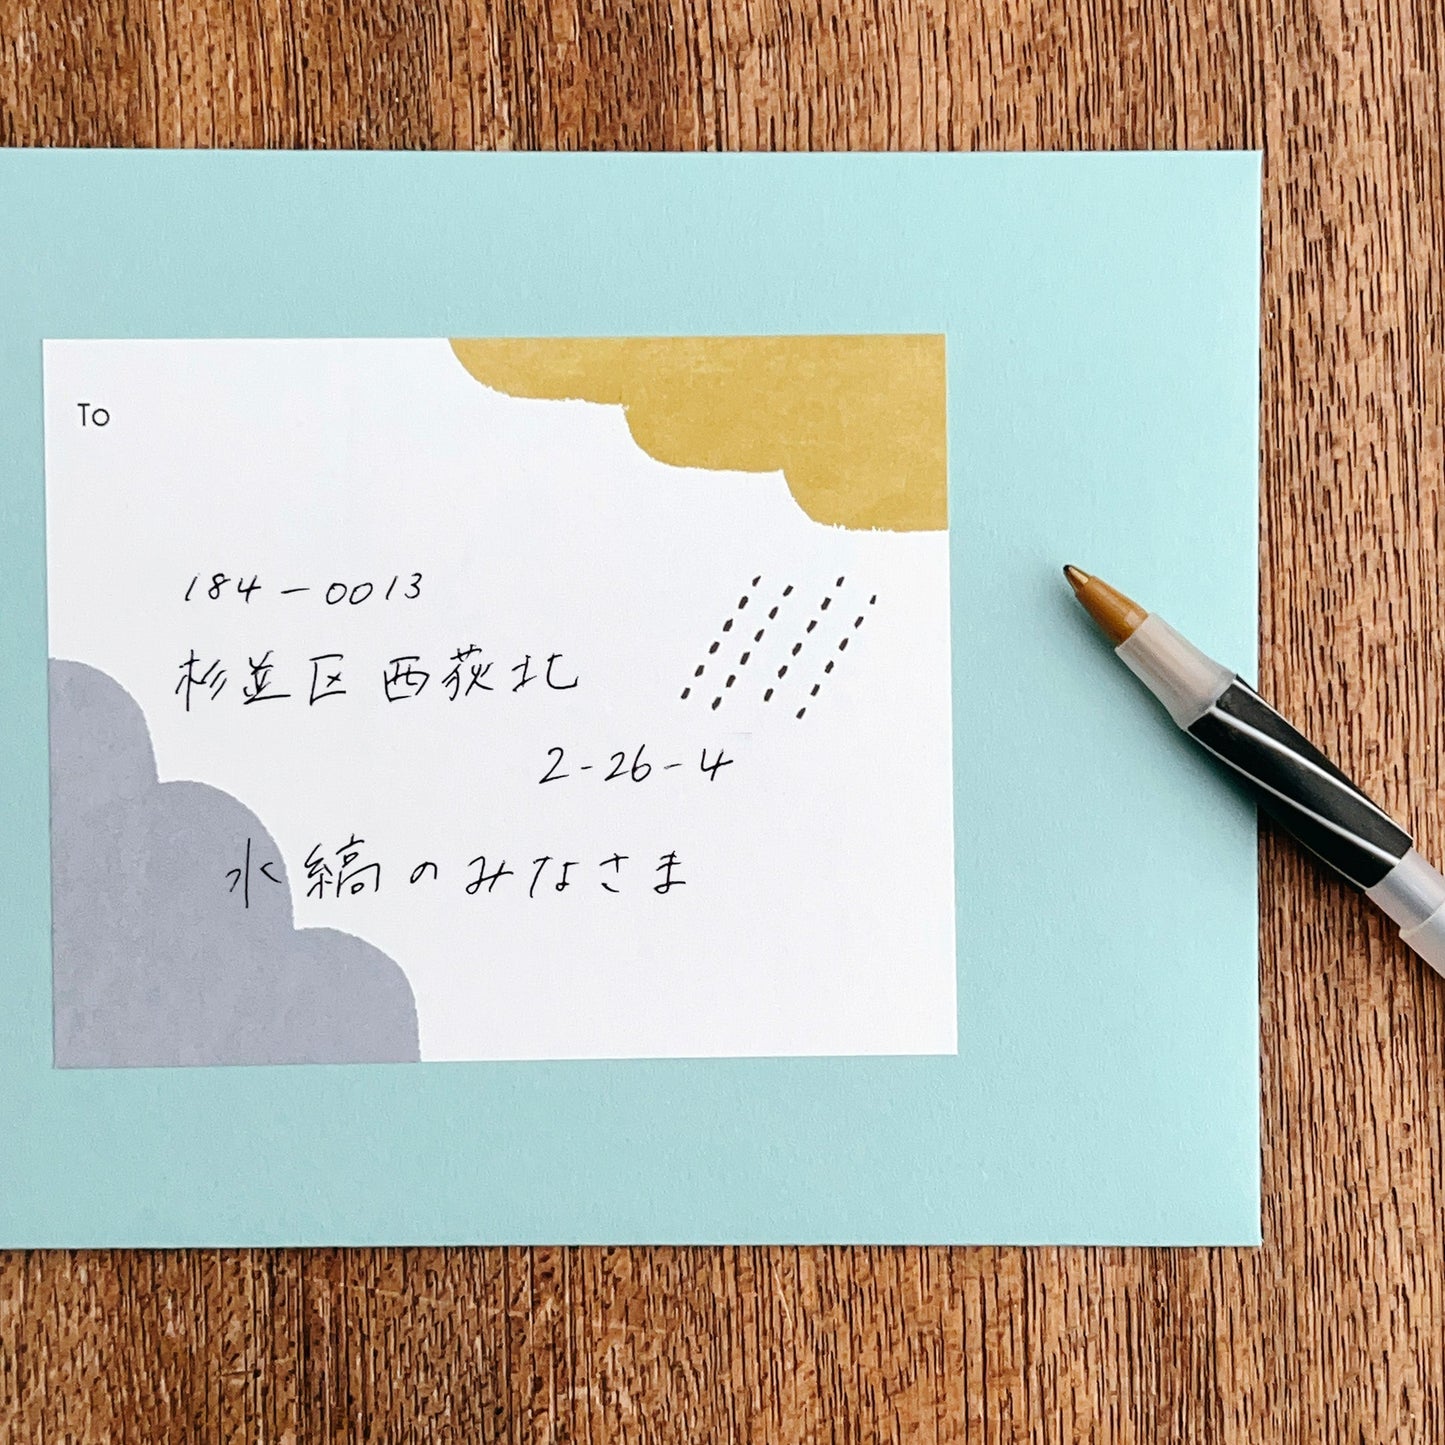 To
184-0013
杉並区西荻北
2-26-4
水縞のみなさま